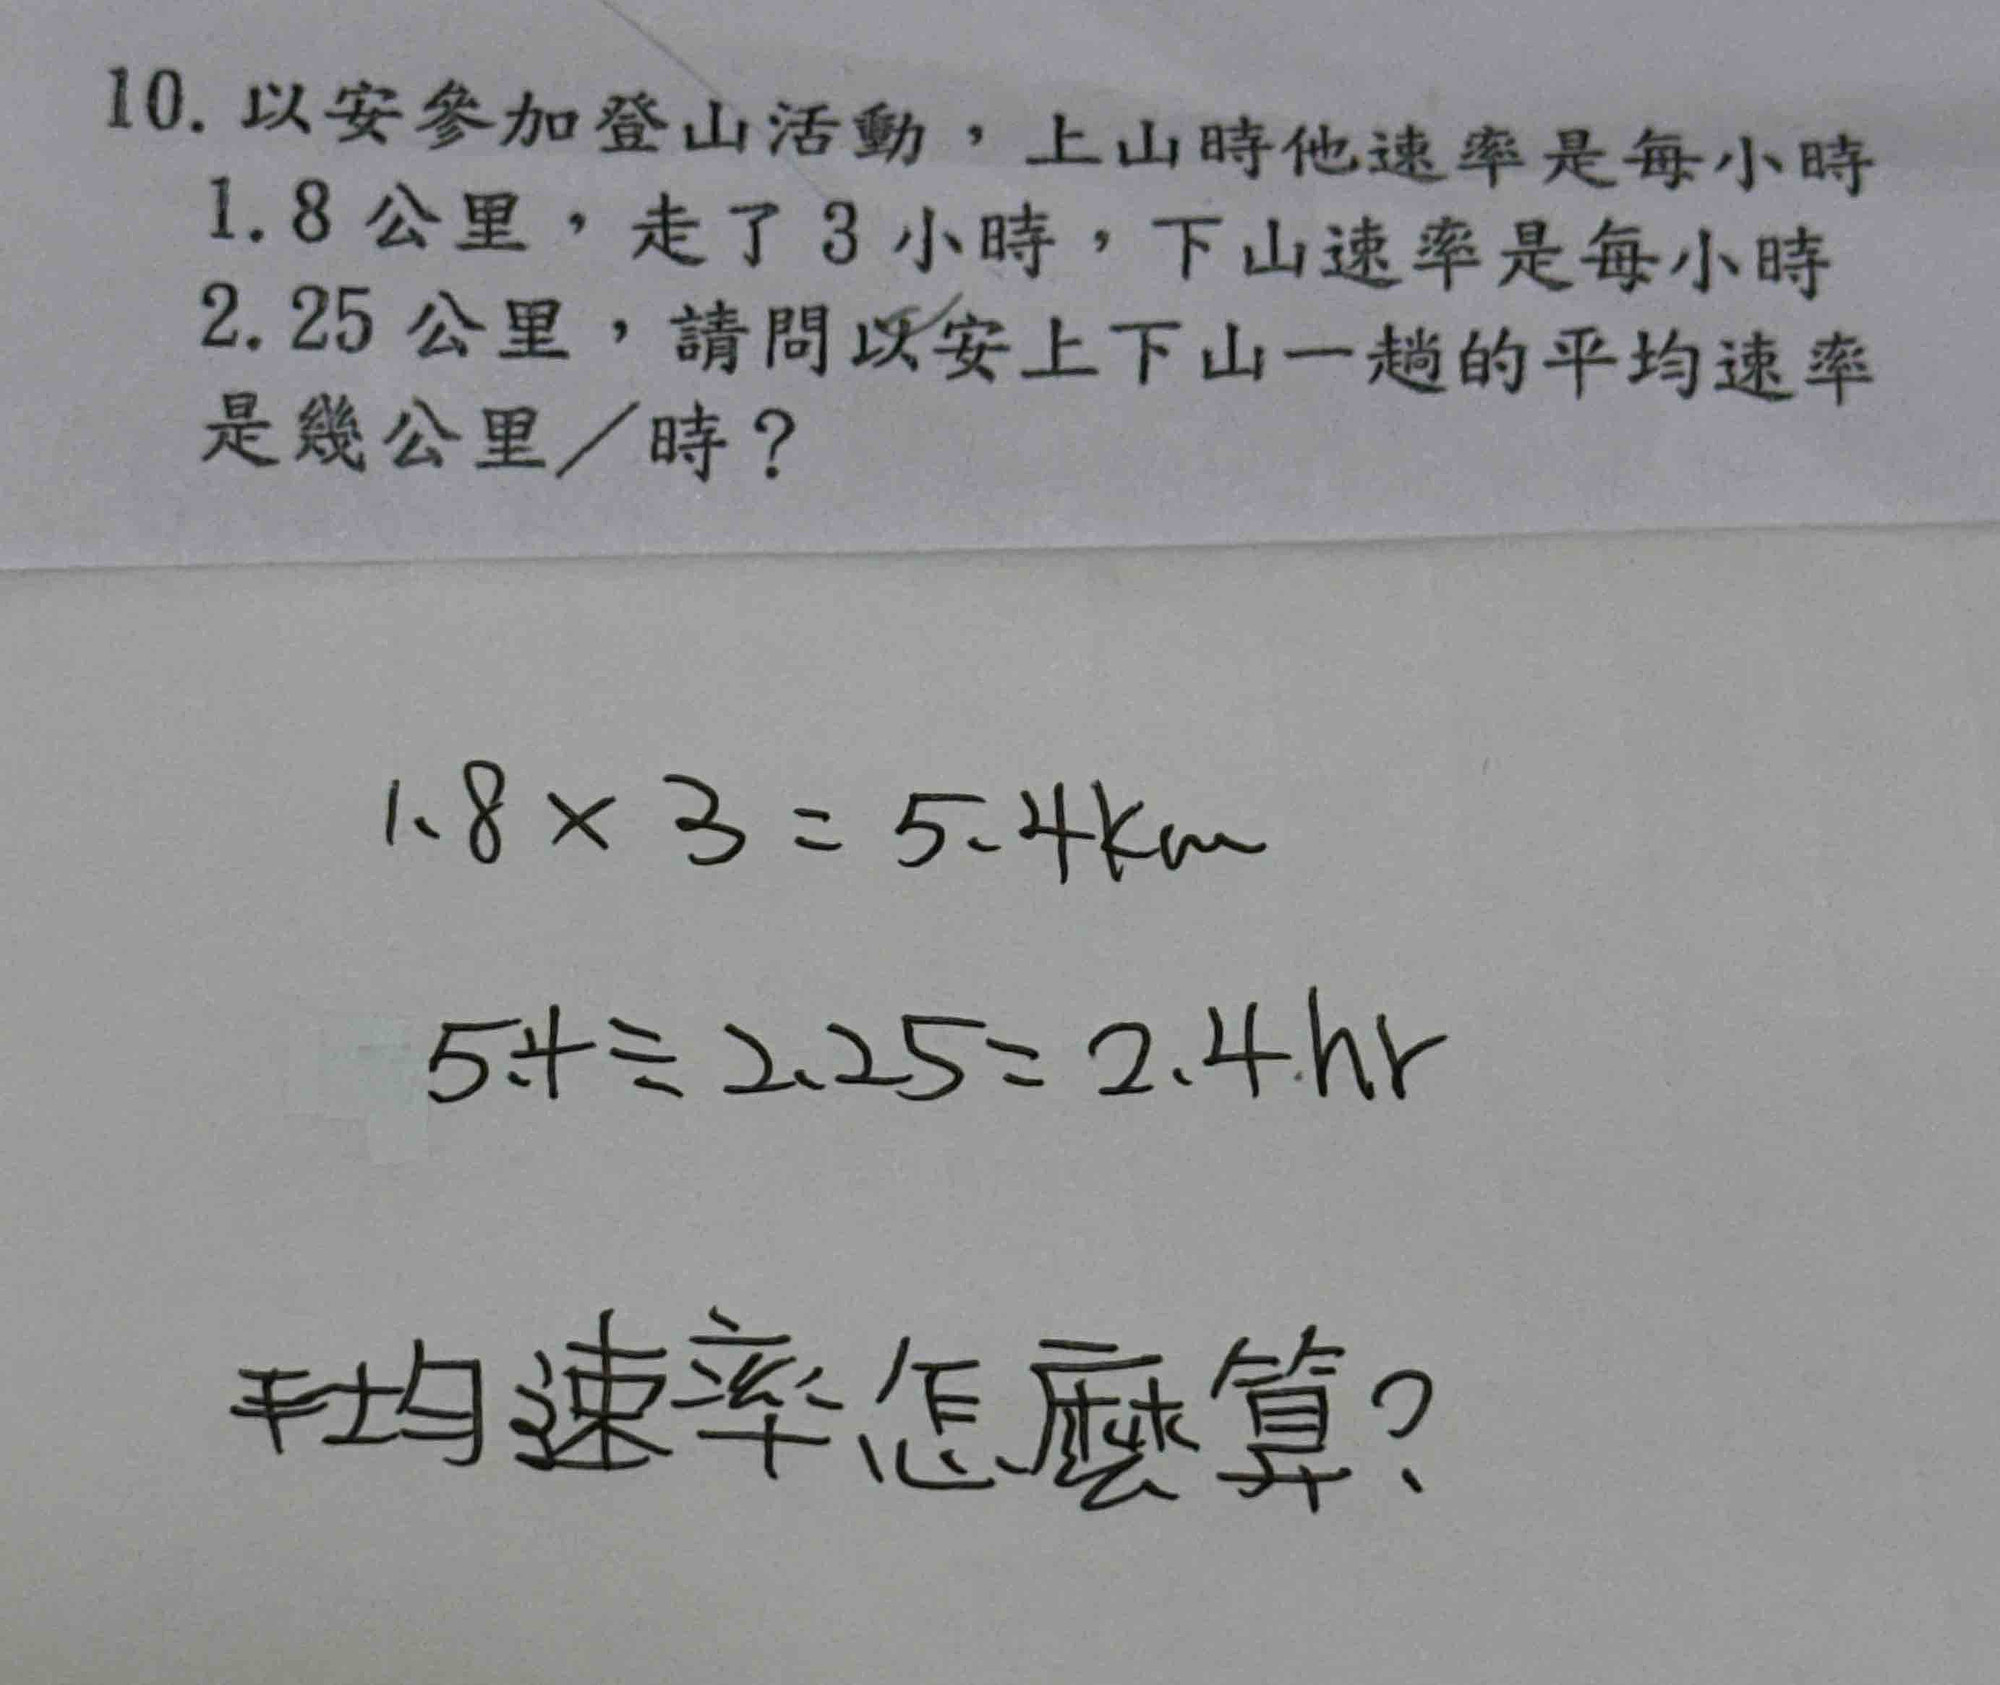 10. 以安參加登山活動，上山時他速率是每小時
1.8 公里，走了 3 小時，下山速率是每小時
2.25 公里，請問以安上下山一趟的平均速率
是幾公里／時？
1.8 × 3 = 5.4km
5.4 ÷ 2.25 = 2.4hr
平均速率怎麼算？